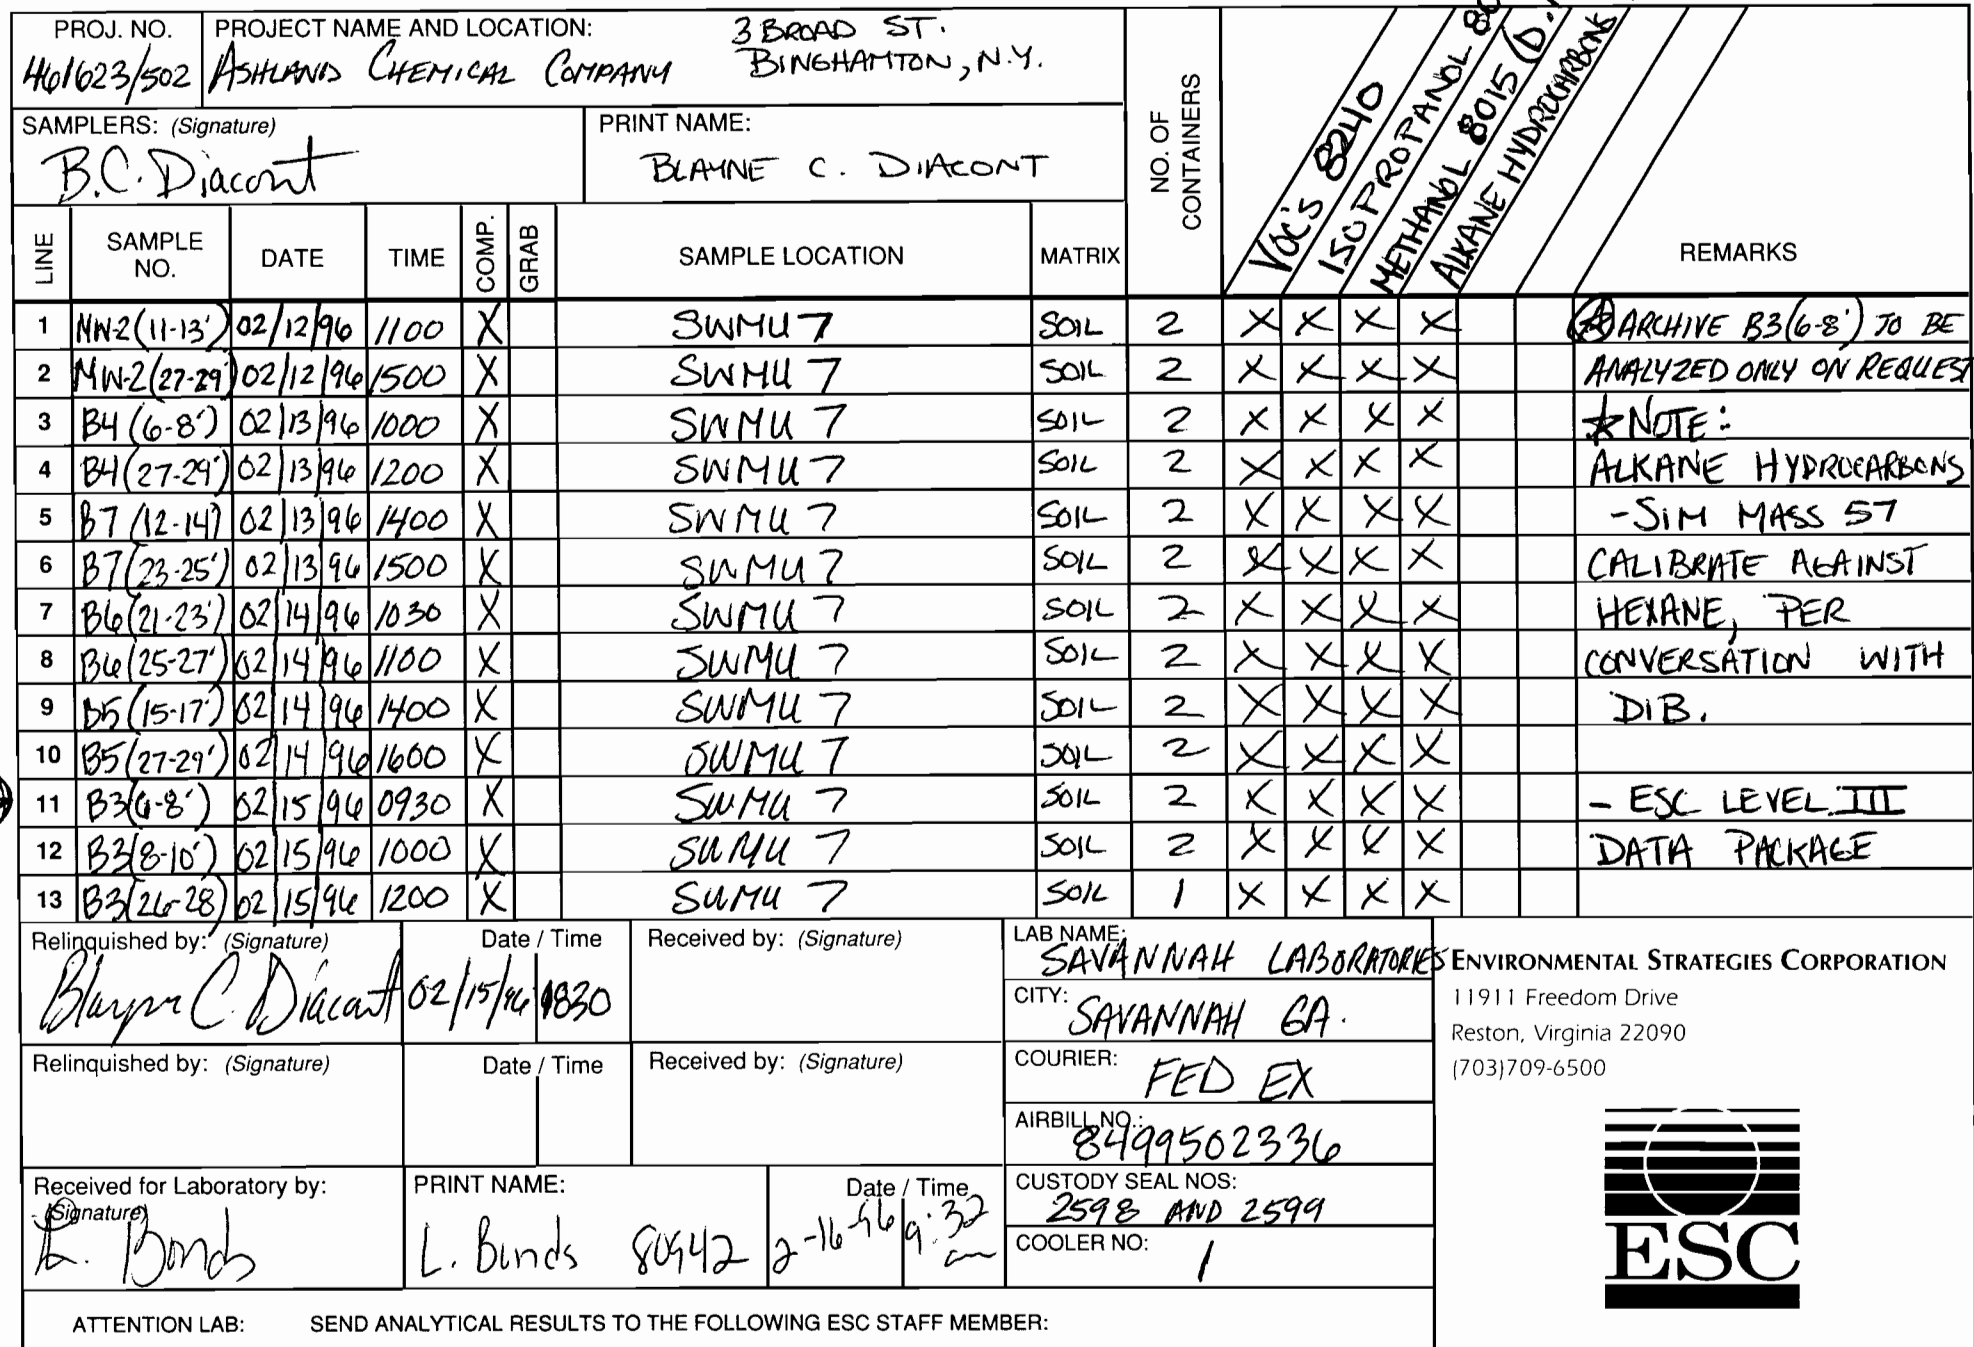 PROJ. NO. PROJECT NAME AND LOCATION: 3 BROAD ST.
461623/502 ASHLAND CHEMICAL COMPANY BINGHAMTON, N.Y.
SAMPLERS: (Signature) PRINT NAME:
B.C. Diacont BLAYNE C. DIACONT
NO. OF CONTAINERS
VOC'S 8240
ISOPROPANOL
METHANOL 8015
ALKANE HYDROCARBONS
LINE SAMPLE NO. DATE TIME COMP. GRAB SAMPLE LOCATION MATRIX REMARKS
1 MW-2 (11-13') 02/12/96 1100 X SWMU 7 SOIL 2 X X X X (A) ARCHIVE B3(6-8') TO BE
2 MW-2 (27-29') 02/12/96 1500 X SWMU 7 SOIL 2 X X X X ANALYZED ONLY ON REQUEST
3 B4 (6-8') 02/13/96 1000 X SWMU 7 SOIL 2 X X X X ☆NOTE:
4 B4 (27-29') 02/13/96 1200 X SWMU 7 SOIL 2 X X X X ALKANE HYDROCARBONS
5 B7 (12-14') 02/13/96 1400 X SWMU 7 SOIL 2 X X X X -SIM MASS 57
6 B7 (23-25') 02/13/96 1500 X SWMU 7 SOIL 2 X X X X CALIBRATE AGAINST
7 B6 (21-23') 02/14/96 1030 X SWMU 7 SOIL 2 X X X X HEXANE, PER
8 B6 (25-27') 02/14/96 1100 X SWMU 7 SOIL 2 X X X X CONVERSATION WITH
9 B5 (15-17') 02/14/96 1400 X SWMU 7 SOIL 2 X X X X DIB.
10 B5 (27-29') 02/14/96 1600 X SWMU 7 SOIL 2 X X X X
11 B3 (6-8') 02/15/96 0930 X SWMU 7 SOIL 2 X X X X - ESC LEVEL III
12 B3 (8-10') 02/15/96 1000 X SWMU 7 SOIL 2 X X X X DATA PACKAGE
13 B3 (26-28) 02/15/96 1200 X SWMU 7 SOIL 1 X X X X
Relinquished by: (Signature) Date / Time Received by: (Signature)
Blayne C. Diacont 02/15/96 1830
Relinquished by: (Signature) Date / Time Received by: (Signature)
Received for Laboratory by: (Signature) PRINT NAME: Date / Time
L. Bonds L. Bonds 80942 2-16-96 9:32
LAB NAME: SAVANNAH LABORATORIES
CITY: SAVANNAH GA.
COURIER: FED EX
AIRBILL NO.: 8499502336
CUSTODY SEAL NOS:
2598 AND 2599
COOLER NO: 1
ENVIRONMENTAL STRATEGIES CORPORATION
11911 Freedom Drive
Reston, Virginia 22090
(703)709-6500
ESC
ATTENTION LAB: SEND ANALYTICAL RESULTS TO THE FOLLOWING ESC STAFF MEMBER: